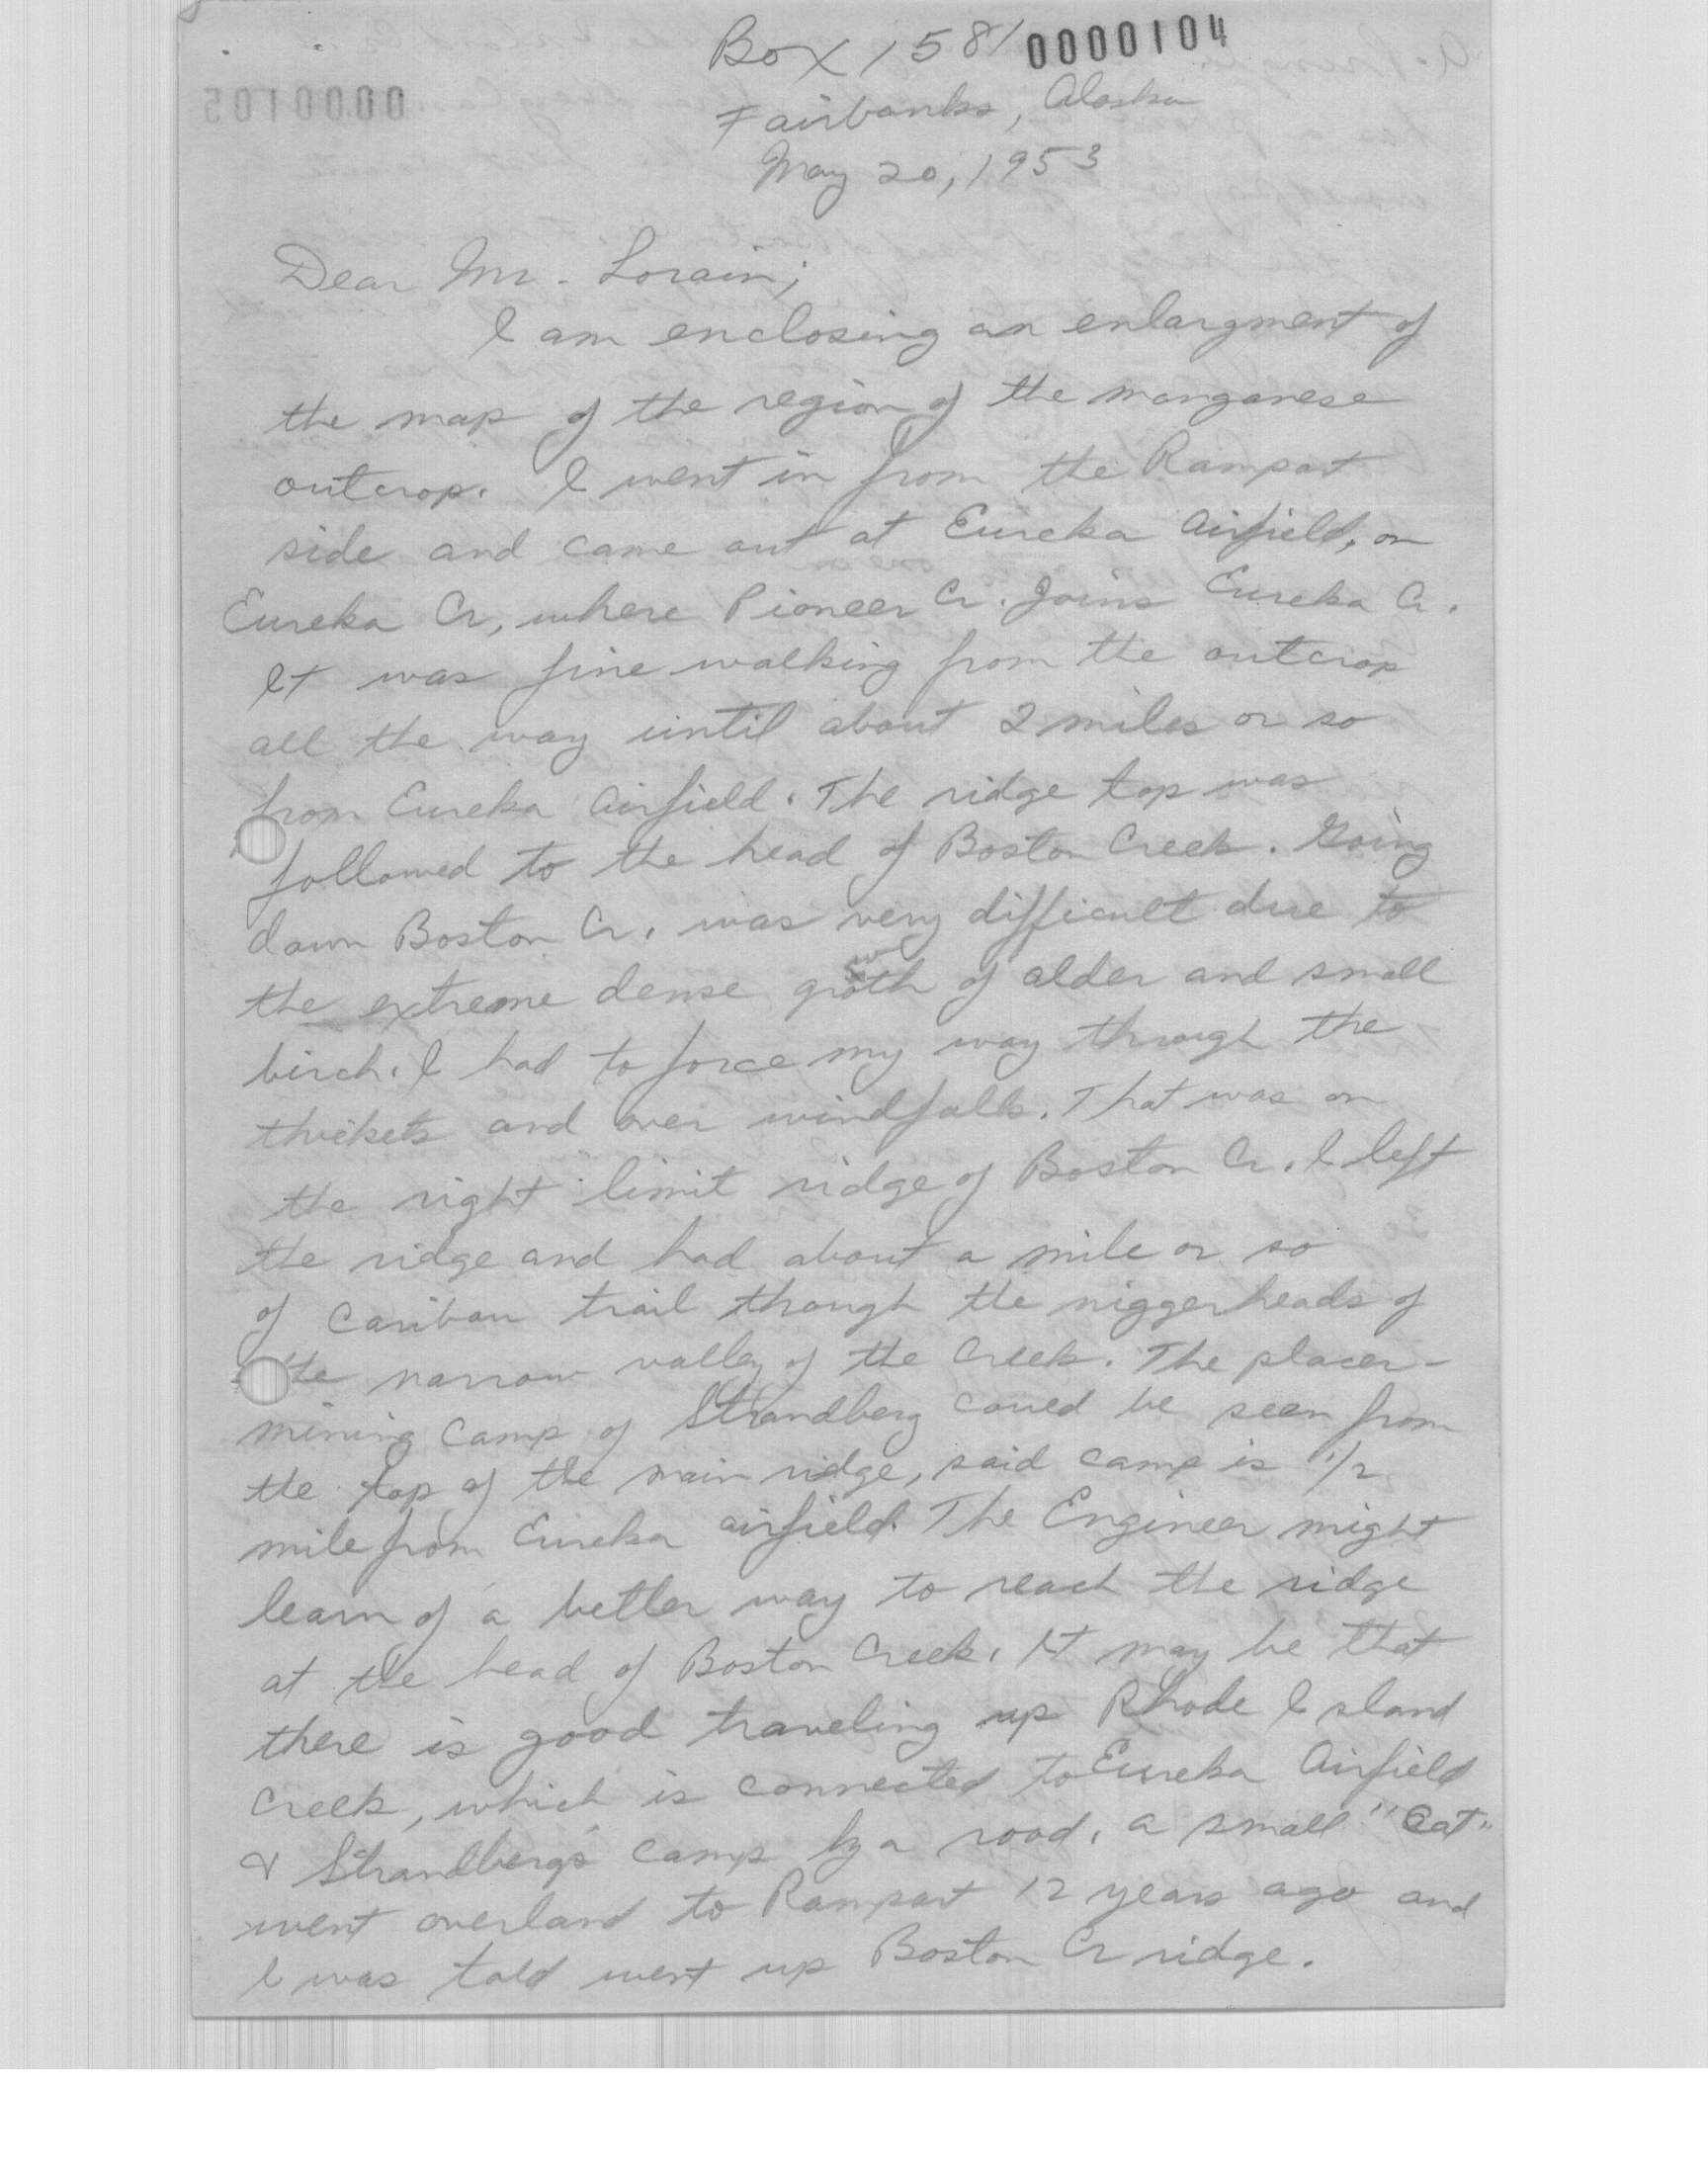 Box 1581 0000104
Fairbanks, Alaska
May 20, 1953
Dear Mr. Lorain;
I am enclosing an enlargment of
the map of the region of the manganese
outcrop. I went in from the Rampart
side and came out at Eureka Airfield, on
Eureka Cr, where Pioneer Cr. Joins Eureka Cr.
It was fine walking from the outcrop
all the way until about 2 miles or so
from Eureka Airfield. The ridge top was
followed to the head of Boston Creek. Going
down Boston Cr. was very difficult due to
the extreme dense growth of alder and small
birch. I had to force my way through the
thickets and over windfalls. That was on
the right limit ridge of Boston Cr. I left
the ridge and had about a mile or so
of caribou trail though the niggerheads of
the narrow valley of the creek. The placer-
mining camp of Strandberg could be seen from
the top of the main ridge, said camp is 1/2
mile from Eureka airfield. The Engineer might
learn of a better way to reach the ridge
at the head of Boston Creek. It may be that
there is good traveling up Rhode Island
Creek, which is connected to Eureka Airfield
& Strandberg's camp by a road. A small "Cat"
went overland to Rampart 12 years ago and
I was told went up Boston Cr ridge.